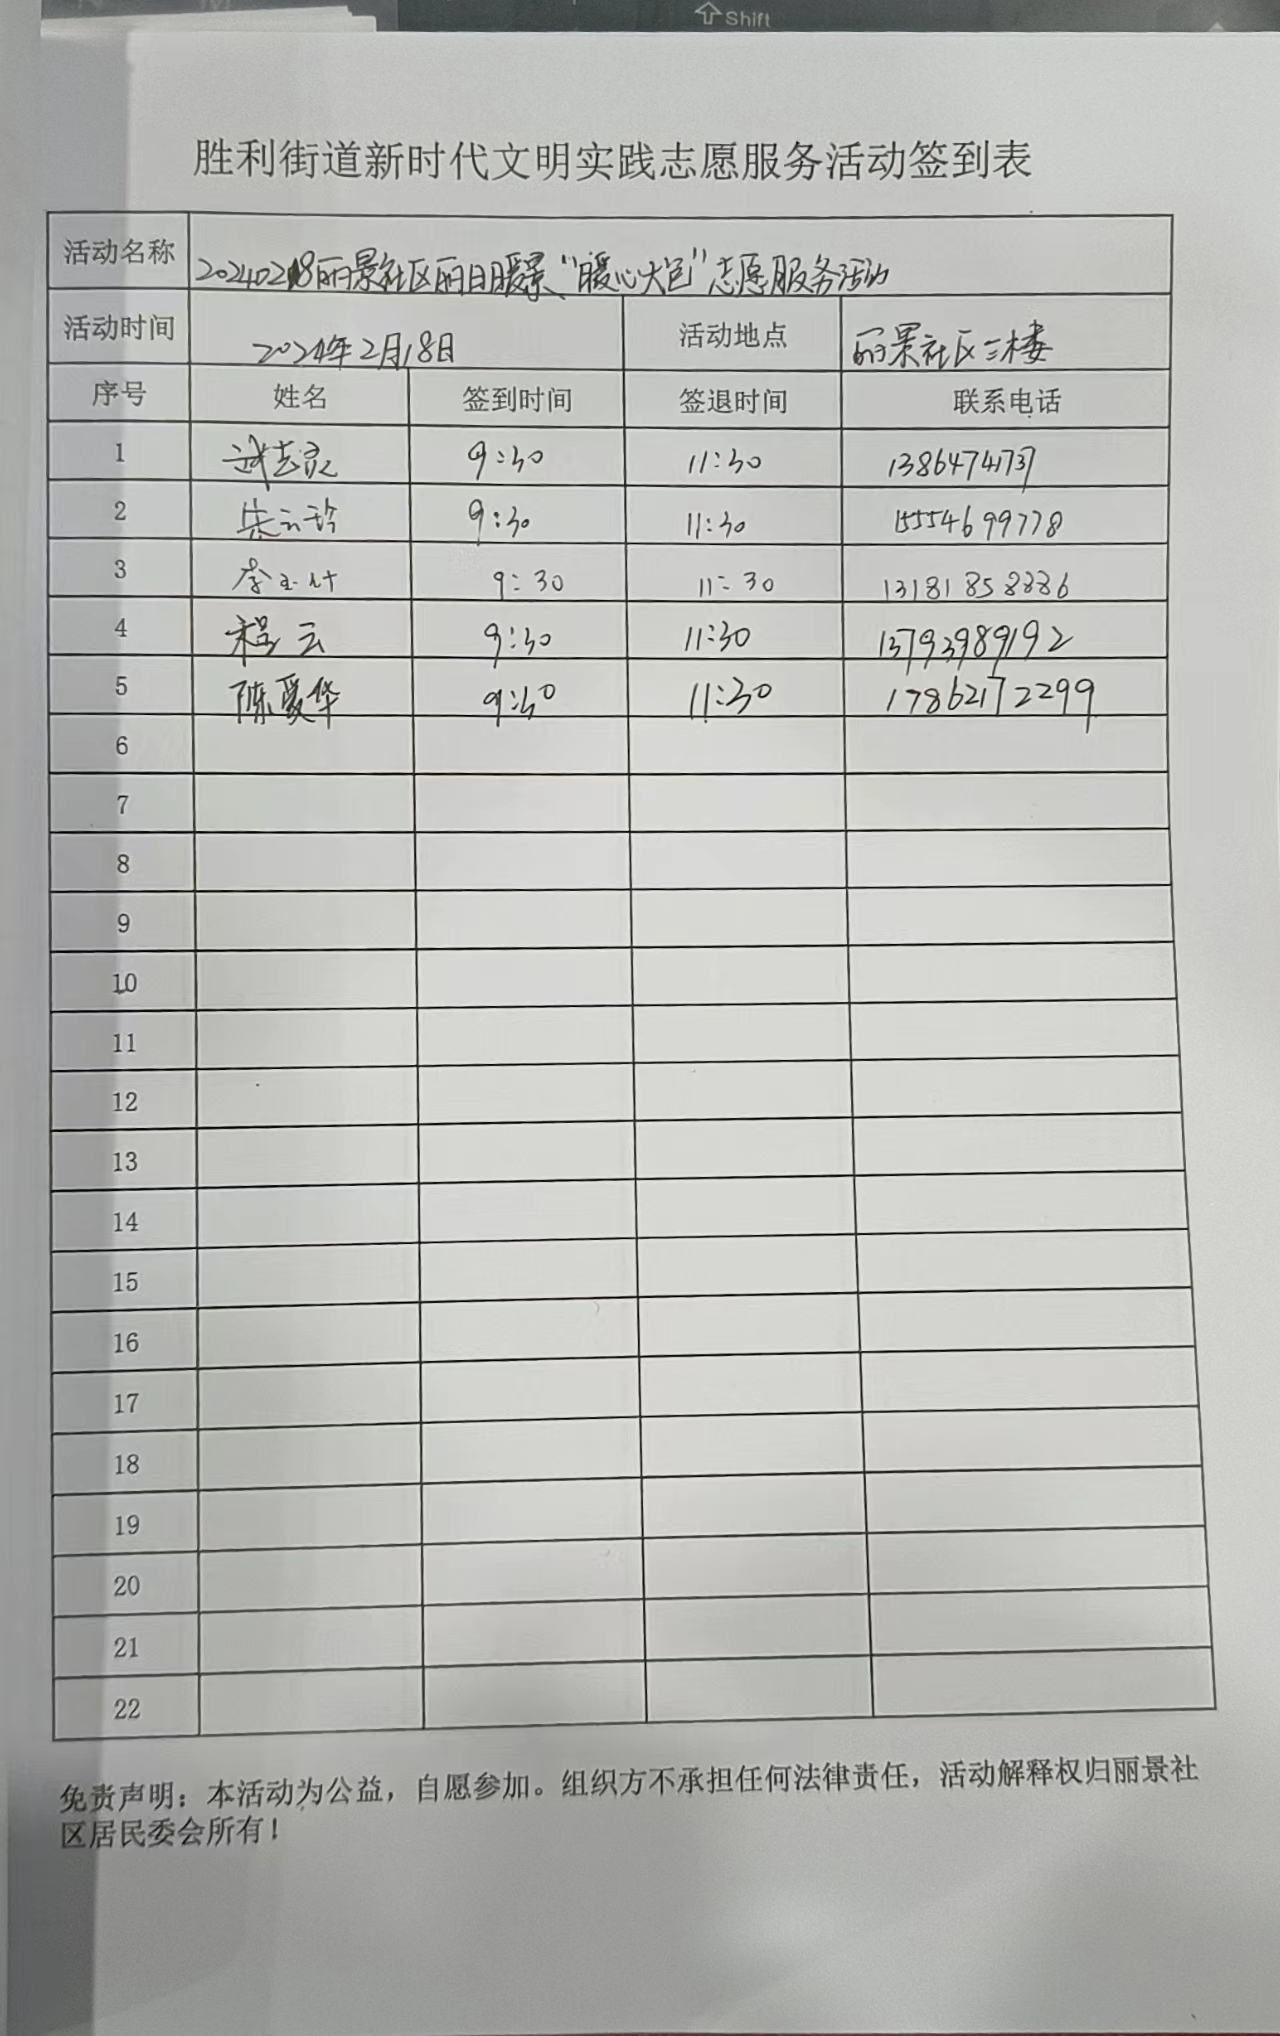 Shift
胜利街道新时代文明实践志愿服务活动签到表
活动名称 20240218丽景社区丽日暖景“暖心大包”志愿服务活动
活动时间 2024年2月18日 活动地点 丽景社区三楼
序号 姓名 签到时间 签退时间 联系电话
1 9:30 11:30 13864741737
2 9:30 11:30 15554699778
3 9:30 11:30 13181858886
4 程云 9:30 11:30 13793989192
5 陈爱华 9:30 11:30 17862172299
6
7
8
9
10
11
12
13
14
15
16
17
18
19
20
21
22
免责声明：本活动为公益，自愿参加。组织方不承担任何法律责任，活动解释权归丽景社
区居民委会所有！